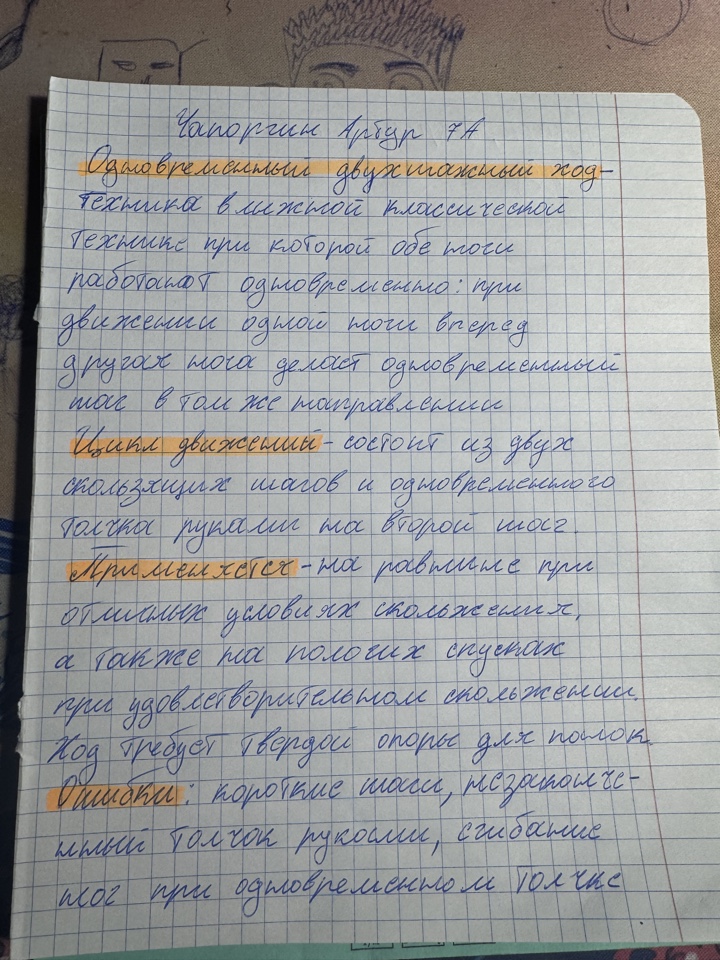 Чапоргин Артур 7А
Одновременный двухшажный ход-
техника в лыжной классической
технике при которой обе ноги
работают одновременно: при
движении одной ноги вперед
другая нога делает одновременный
шаг в том же направлении
Цикл движений - состоит из двух
скользящих шагов и одновременного
толчка руками на второй шаг.
Применяется - на равнине при
отличных условиях скольжения,
а также на пологих спусках
при удовлетворительном скольжении.
Ход требует твердой опоры для палок.
Ошибки: короткие шаги, незаконче-
нный толчок руками, сгибание
ног при одновременном толчке